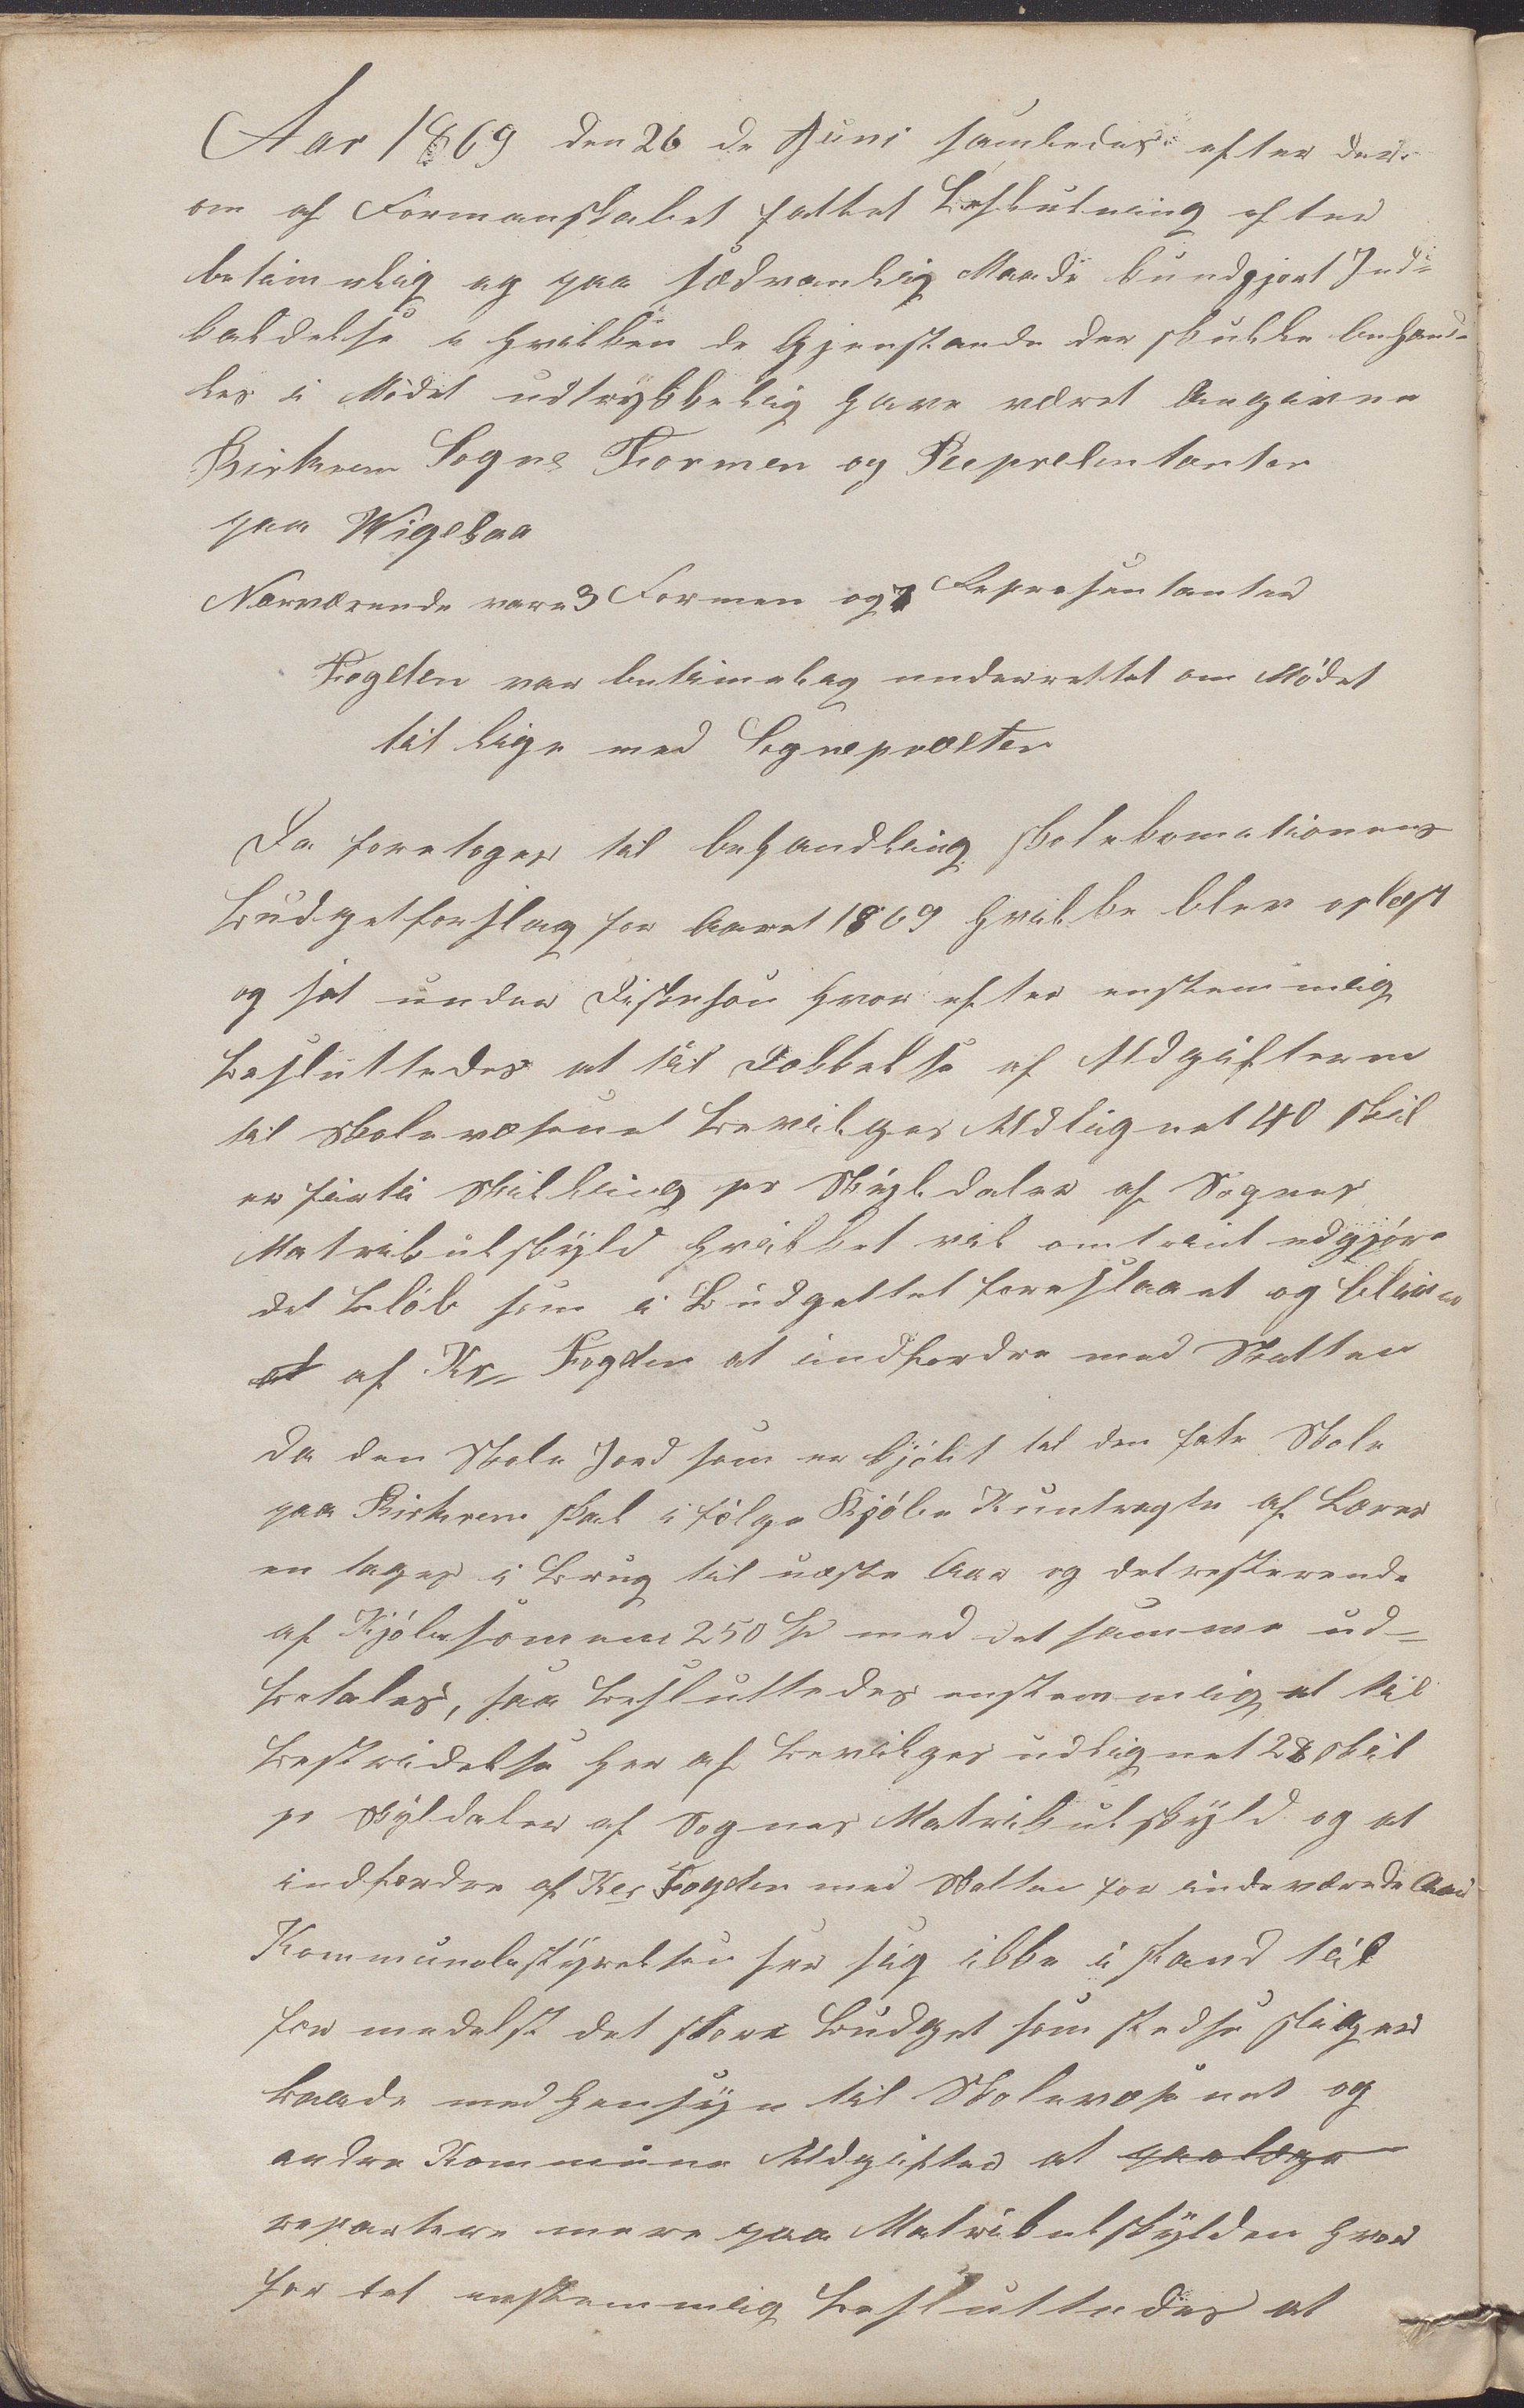 Aar 1869 den 26 de Juni samledes efter der-
om af Formanskabet fattet Beslutning efter
betimelig og paa sædvanlig Maade kundgjort Ind-
kaldelse i hvilken de Gjenstande der skulde behand-
les i Mødet udtrykkelig have været Angivne
Birkrem Sogns Formen og Representanter
paa Wigesaa
Nærværende vare 3 Formen og 7 Representanter
Fogden var betimelig underrettet om Mødet
til lige med Sognepræsten
Da foretoges til behandling skolekomitionens
Budgetforslag for Aaret 1869 hvilke blev oplæst
og sat under Diskusion hvor efter enstemmig
besluttedes at til Dækkelse af Udgifterne
til Skolevæsenet bevilges Udlignet 40 skil
er firti Skilling pr Skyldaler af Sognes
Matrikulskyld hvilket vil omtrent udgjøre
det beløb som i Budgettet foreslaaet og bliver
at af Kr Fogden at indfordre med Skatten
da den Skole Jord som er kjøbt til den faste Skole
paa Birkrem skal i følge Kjøbe Kuntragte af Lærer
en tages i brug til næste Aar og det resterende
af Kjøbesommen 250 Sp med det samme ud-
betales, saa besluttedes enstemmig at til
bestridelse her af bevilges udlignet 28 skil
pr Skyldaler af Sognes Matrikulskyld og at
indfordre af Kr Fogden med Skatten for indeværende Aar
Kommunebestyrelsen ser sig ikke i stand til
for medelst det store Budget som stedse stiger
baade med Hensyn til Skolevæsenet og
andre Kommune Udgifter at paalægge
repartere mere paa Matrikulskylden hvor
for det enstemmig besluttedes at